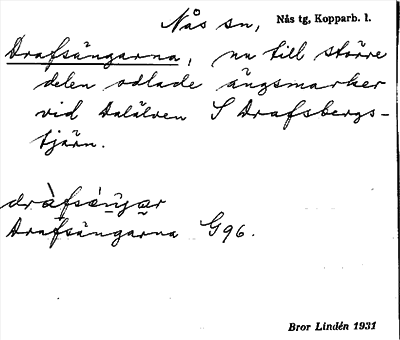 Nås sn, Nås tg, Kopparb. l.
Drafsängarna, nu till större
delen odlade ängsmarker
vid Dalälven S Drafsbergs-
tjärn.
Drafsängarna G96.
Bror Lindén 1931